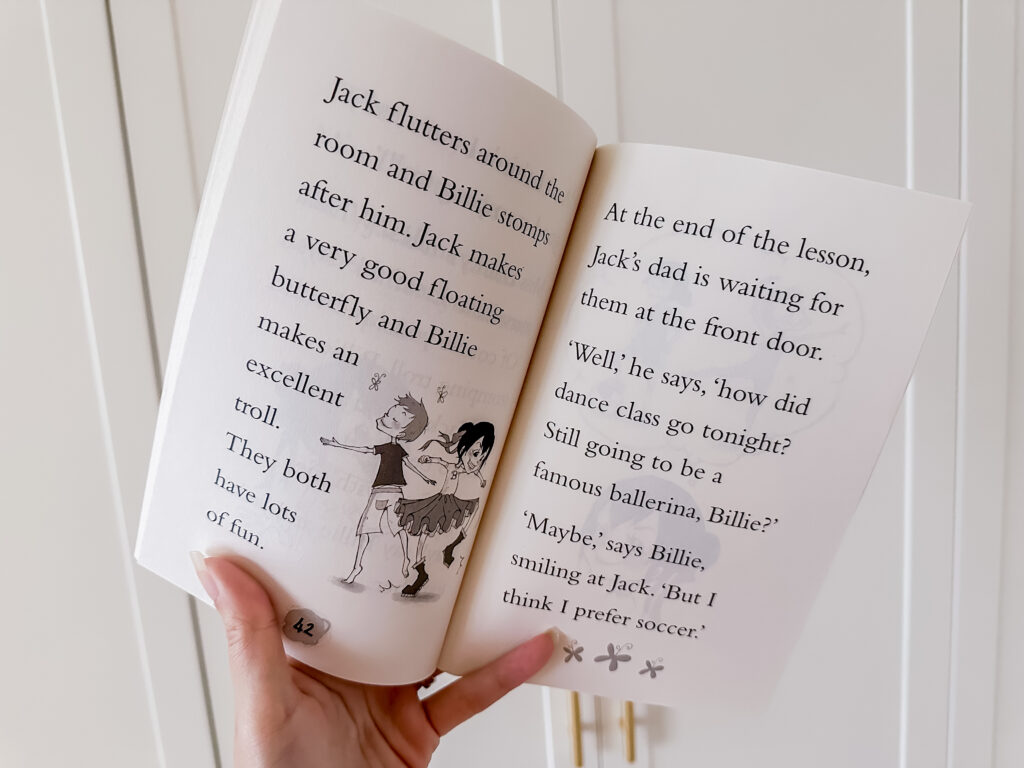 Jack flutters around the
room and Billie stomps
after him. Jack makes
a very good floating
butterfly and Billie
makes an
excellent
troll.
They both
have lots
of fun.
42
At the end of the lesson,
Jack's dad is waiting for
them at the front door.
‘Well,’ he says, ‘how did
dance class go tonight?
Still going to be a
famous ballerina, Billie?’
‘Maybe,’ says Billie,
smiling at Jack. ‘But I
think I prefer soccer.’